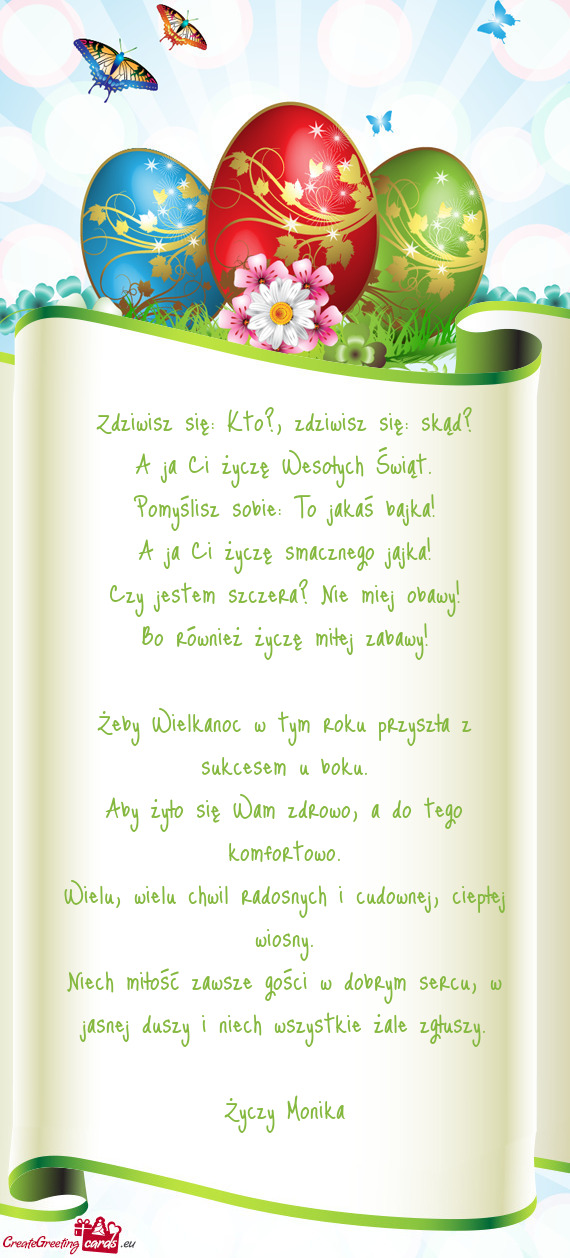 Zdziwisz się: Kto?, zdziwisz się: skąd?
A ja Ci życzę Wesołych Świąt.
Pomyślisz sobie: To jakaś bajka!
A ja Ci życzę smacznego jajka!
Czy jestem szczera? Nie miej obawy!
Bo również życzę miłej zabawy!
Żeby Wielkanoc w tym roku przyszła z
sukcesem u boku.
Aby żyło się Wam zdrowo, a do tego
komfortowo.
Wielu, wielu chwil radosnych i cudownej, ciepłej
wiosny.
Niech miłość zawsze gości w dobrym sercu, w
jasnej duszy i niech wszystkie żale zgłuszy.
Życzy Monika
CreateGreeting cards .eu